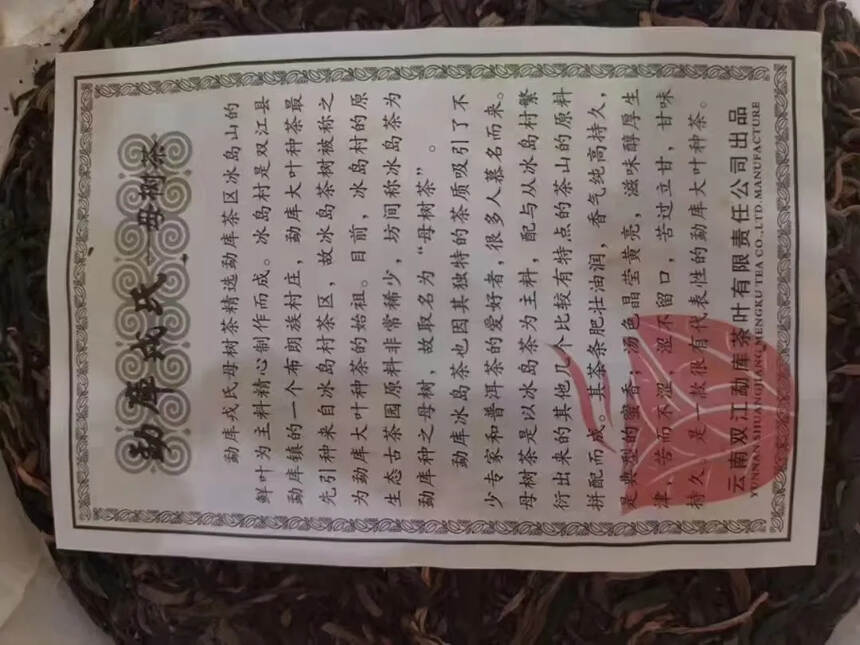 勐库戎氏—母树茶
勐库戎氏母树茶精选勐库茶区冰岛山的
鲜叶为主料精心制作而成。冰岛村是双江县
勐库镇的一个布朗族村庄，勐库大叶种茶最
先引种来自冰岛村茶区，故冰岛茶树被称之
为勐库大叶种茶的始祖。目前，冰岛村的原
生态古茶园原料非常稀少，坊间称冰岛茶为
勐库种之母树，故取名为“母树茶”。
勐库冰岛茶也因其独特的茶质吸引了不
少专家和普洱茶的爱好者，很多人慕名而来。
母树茶是以冰岛茶为主料，配与从冰岛村繁
衍出来的其他几个比较有特点的茶山的原料
拼配而成。其茶条肥壮油润，香气纯高持久，
是典型的蜜香；汤色晶莹黄亮，滋味醇厚生
津，苦而不涩，涩不留口，苦过立甘，甘味
持久，是一款很有代表性的勐库大叶种茶。
云南双江勐库茶叶有限责任公司出品
YUNNAN SHUANGJIANG MENGKU TEA CO.,LTD.MANUFACTURE